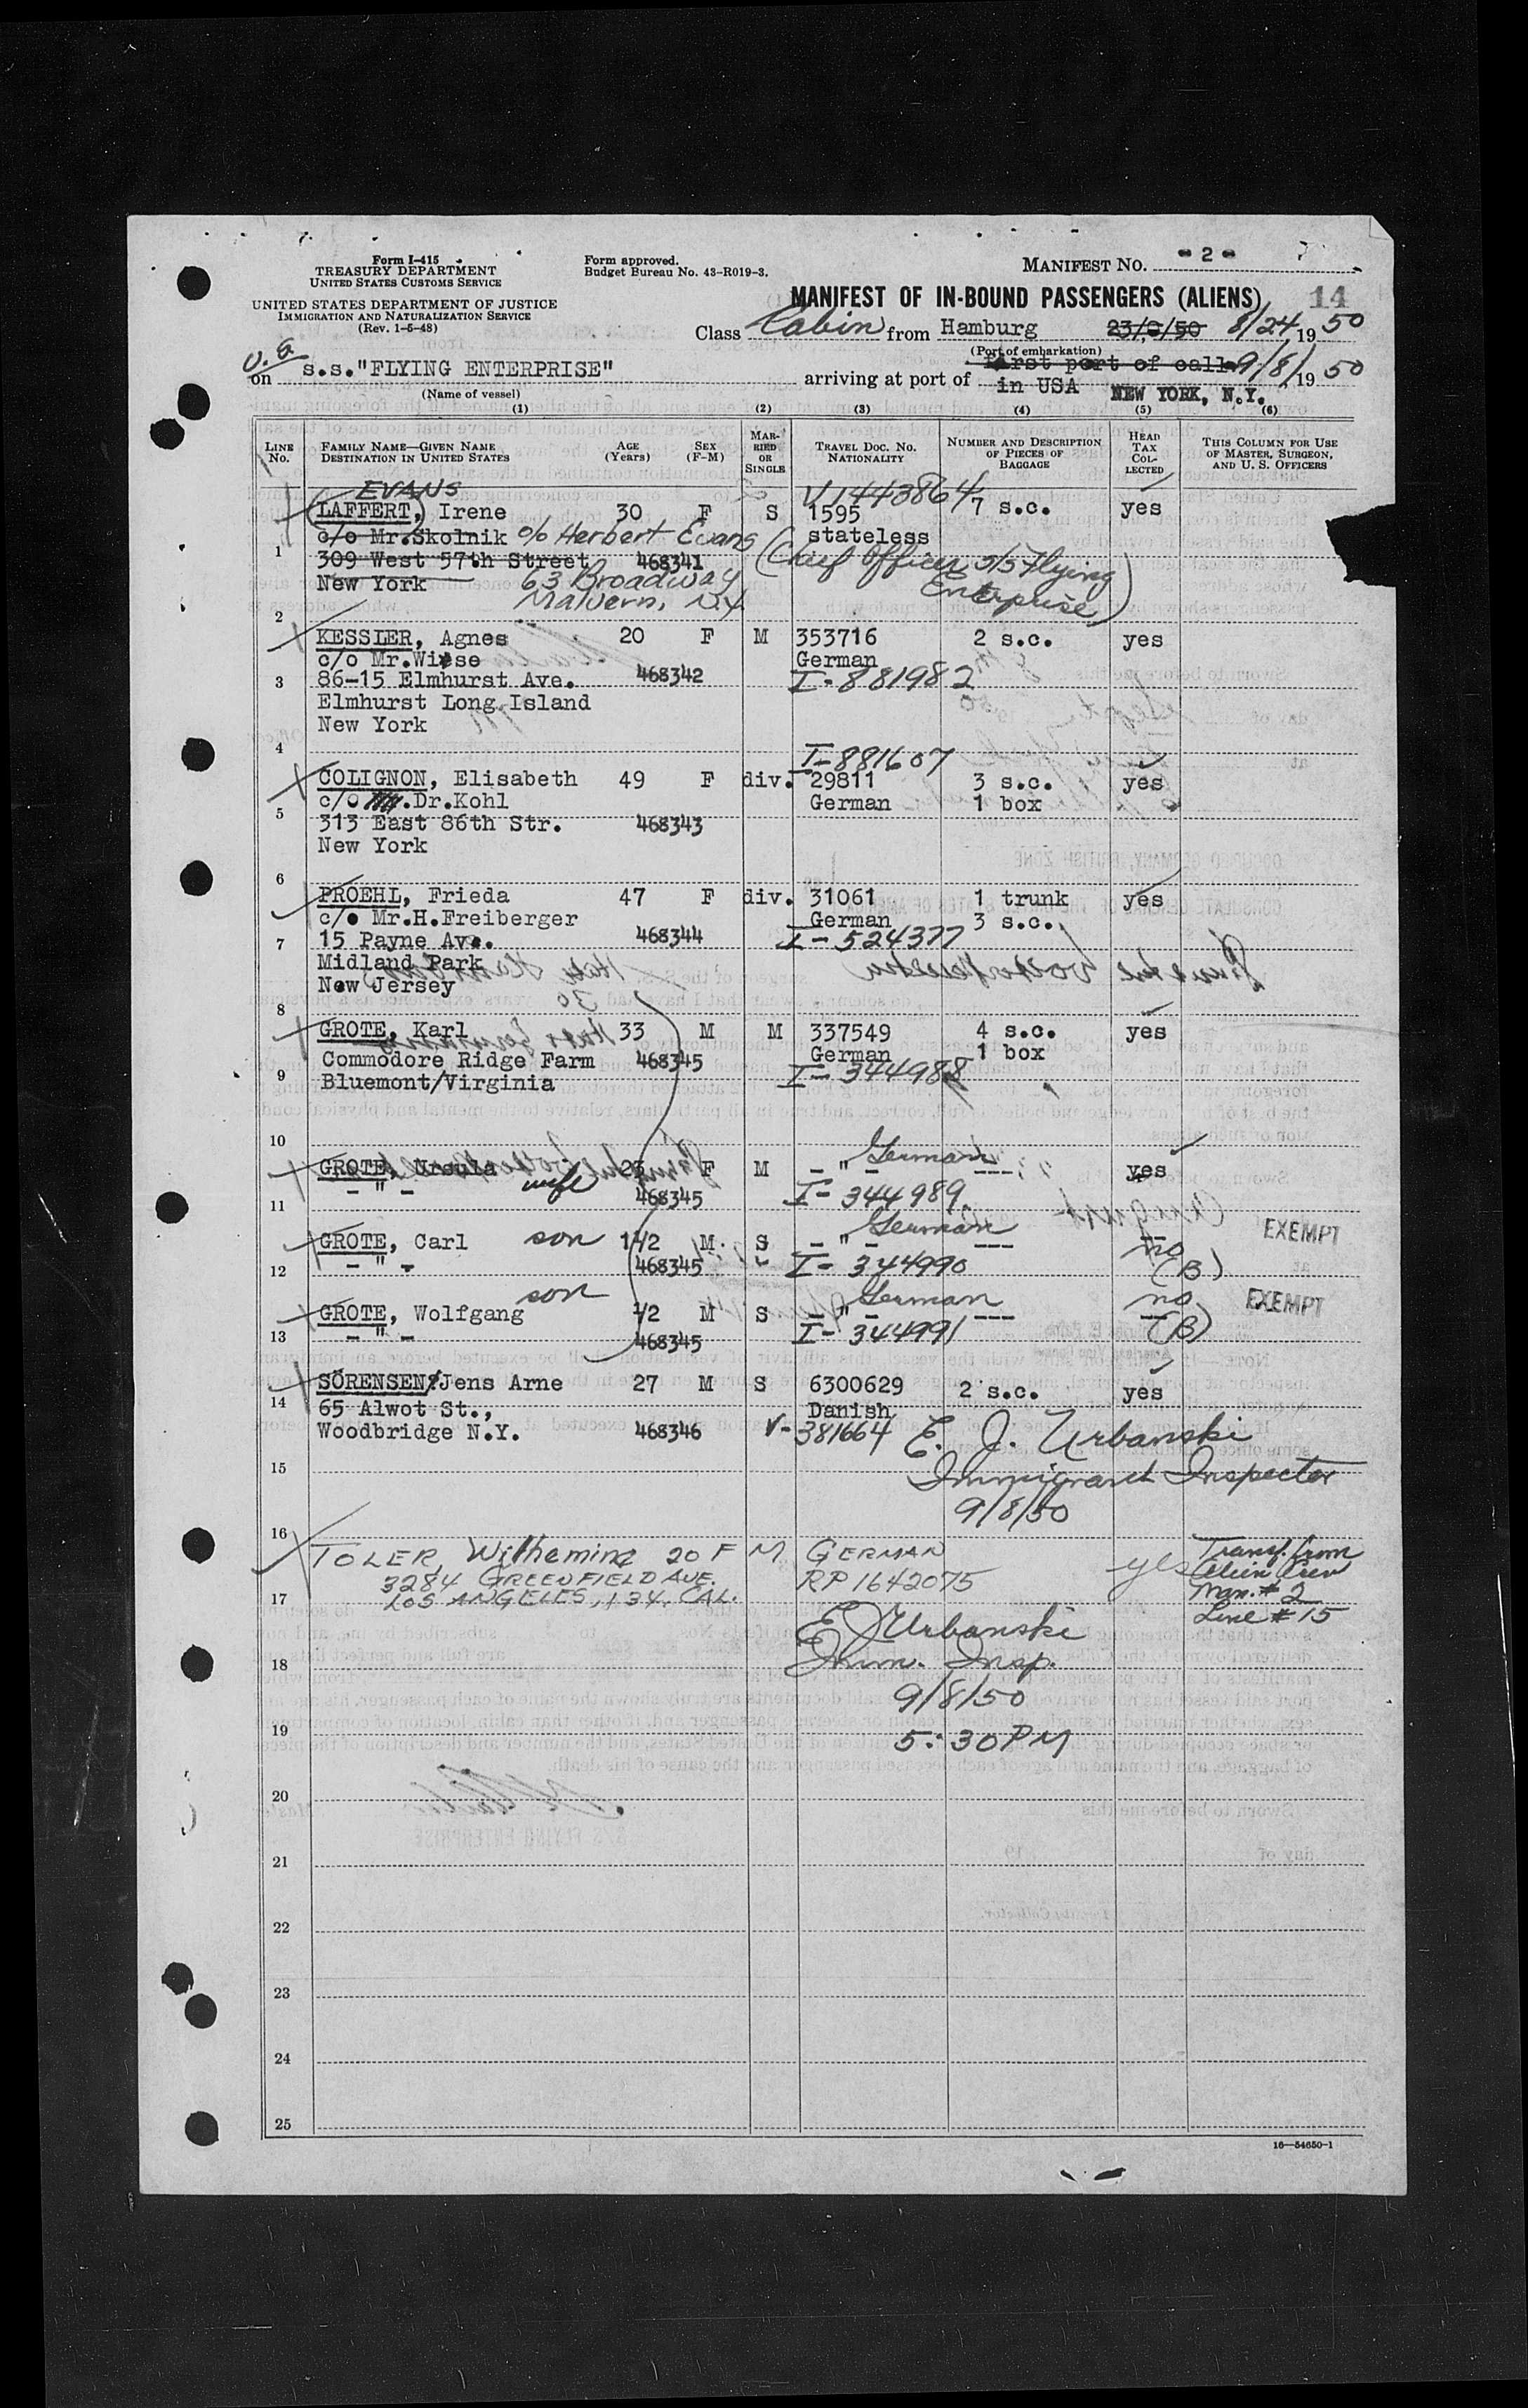 Form I-415
TREASURY DEPARTMENT
UNITED STATES CUSTOMS SERVICE
UNITED STATES DEPARTMENT OF JUSTICE
IMMIGRATION AND NATURALIZATION SERVICE
(Rev. 1-5-48)
Form approved.
Budget Bureau No. 43-R019-3.
MANIFEST NO. - 2 -
MANIFEST OF IN-BOUND PASSENGERS (ALIENS) 14
Class Cabin from Hamburg 23/8/50 8/24, 1950
(Port of embarkation)
on s.s."FLYING ENTERPRISE" arriving at port of first port of call 9/8/, 1950
in USA NEW YORK, N.Y.
(Name of vessel)
(1) (2) (3) (4) (5) (6)
LINE NO. FAMILY NAME—GIVEN NAME DESTINATION IN UNITED STATES AGE (Years) SEX (F-M) MARRIED OR SINGLE TRAVEL DOC. NO. NATIONALITY NUMBER AND DESCRIPTION OF PIECES OF BAGGAGE HEAD TAX COLLECTED THIS COLUMN FOR USE OF MASTER, SURGEON, AND U. S. OFFICERS
EVANS V1443864
LAFFERT, Irene 30 F S 1595 7 s.c. yes
c/o Mr.Skolnik c/o Herbert Evans stateless
1 309 West 57th Street 468341 (Chief Officer S/S Flying
New York 63 Broadway Enterprise)
Malvern, N.Y.
2
KESSLER, Agnes 20 F M 353716 2 s.c. yes
c/o Mr.Wiese German
3 86-15 Elmhurst Ave. 468342 I-881982
Elmhurst Long Island
New York
4 I-881607
COLIGNON, Elisabeth 49 F div. 29811 3 s.c. yes
c/o Dr.Kohl German 1 box
5 313 East 86th Str. 468343
New York
6
PROEHL, Frieda 47 F div. 31061 1 trunk yes
c/o Mr.H.Freiberger German 3 s.c.
7 15 Payne Ave. 468344 I-524377
Midland Park
New Jersey
8
GROTE, Karl 33 M M 337549 4 s.c. yes
Commodore Ridge Farm 468345 German 1 box
9 Bluemont/Virginia I-344988
10
GROTE, Ursula 23 F M - " - German --- yes
11 - " - wife 468345 I-344989
GROTE, Carl son 1 1/2 M S - " - German --- no EXEMPT
12 - " - 468345 I-344990 (B)
GROTE, Wolfgang son 1/2 M S - " - German --- no EXEMPT
13 - " - 468345 I-344991 (B)
SÖRENSEN, Jens Arne 27 M S 6300629 2 s.c. yes
14 65 Alwot St., Danish
Woodbridge N.Y. 468346 V-381664 E. J. Urbanski
15 Immigrant Inspector
9/8/50
16
TOLER, Wilhemine 20 F M GERMAN yes Transf. from
3284 GREENFIELD AVE. RP 1642075 Alien Crew
17 LOS ANGELES, 34, CAL. Man. # 2
Line # 15
E J Urbanski
18 Imm. Insp.
9/8/50
19 5:30 PM
20
21
22
23
24
25
16—54650-1